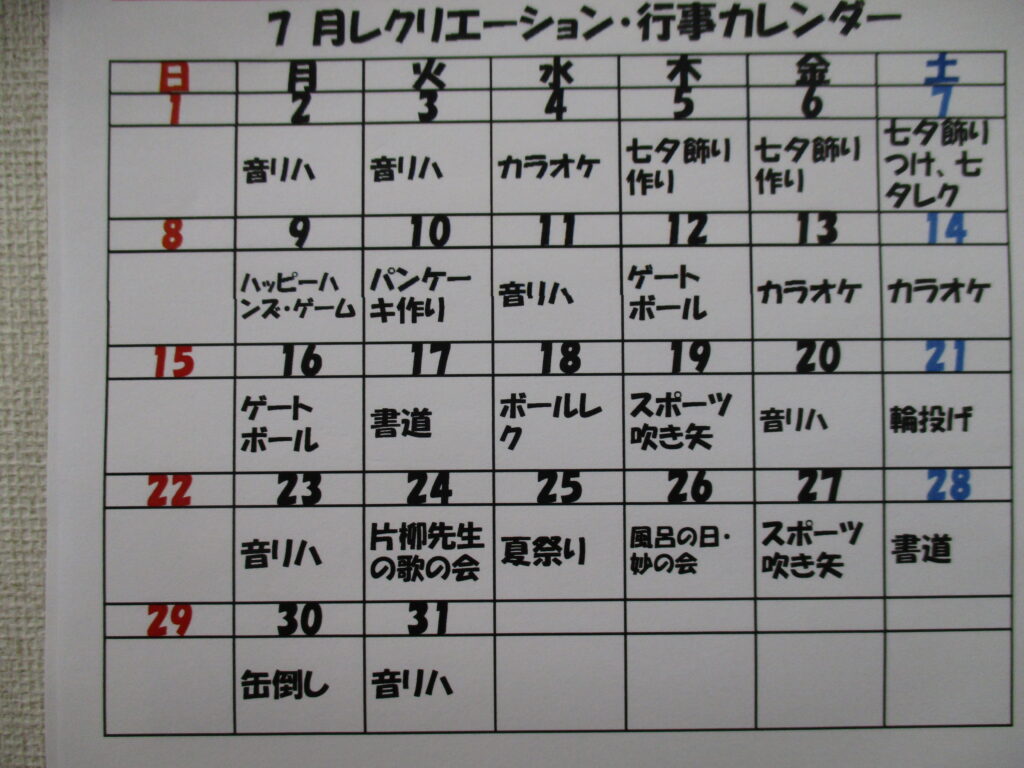 7月レクリエーション・行事カレンダー
日 月 火 水 木 金 土
1 2 3 4 5 6 7
音リハ 音リハ カラオケ 七夕飾り 七夕飾り 七夕飾り
作り 作り つけ、七
夕レク
8 9 10 11 12 13 14
ハッピーハ パンケー 音リハ ゲート カラオケ カラオケ
ンズ・ゲーム キ作り ボール
15 16 17 18 19 20 21
ゲート 書道 ボールレ スポーツ 音リハ 輪投げ
ボール ク 吹き矢
22 23 24 25 26 27 28
音リハ 片柳先生 夏祭り 風呂の日・ スポーツ 書道
の歌の会 妙の会 吹き矢
29 30 31
缶倒し 音リハ